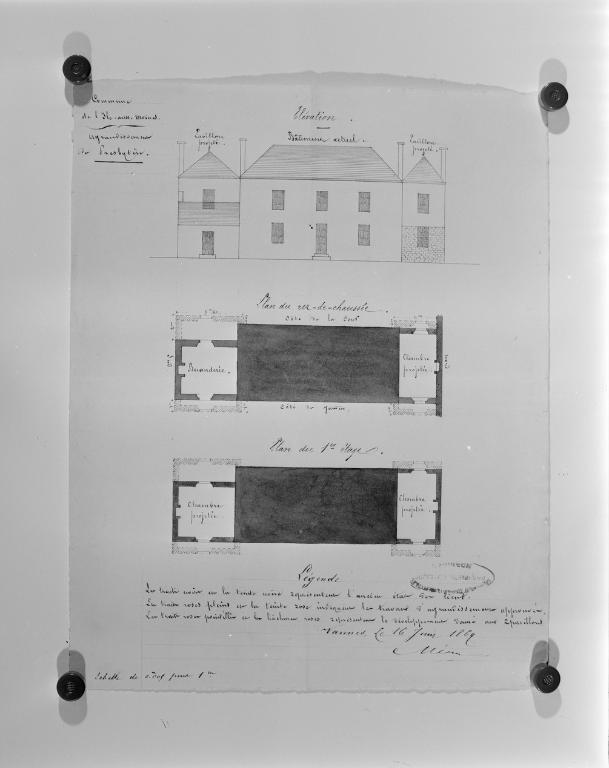 Commune
de l'Ile-aux-Moines.
Agrandissement
du Presbytère.
Elévation.
Pavillon
projeté.
Bâtiment actuel.
Pavillon
projeté.
Plan du rez-de-chaussée.
Côté de la Cour
Buanderie.
Chambre
projetée.
Côté du Jardin.
Plan du 1er étage.
Chambre
projetée.
Chambre
projetée.
Légende
Les traits noirs et la teinte noire représentent l'ancien état des lieux.
Les traits roses pleins et la teinte rose indiquent les travaux d'agrandissement approuvés.
Les traits roses pointillés et les hachures roses représentent le développement donné aux 2 pavillons
Vannes, le 16 Juin 1869
Echelle de 0.005 pour 1m